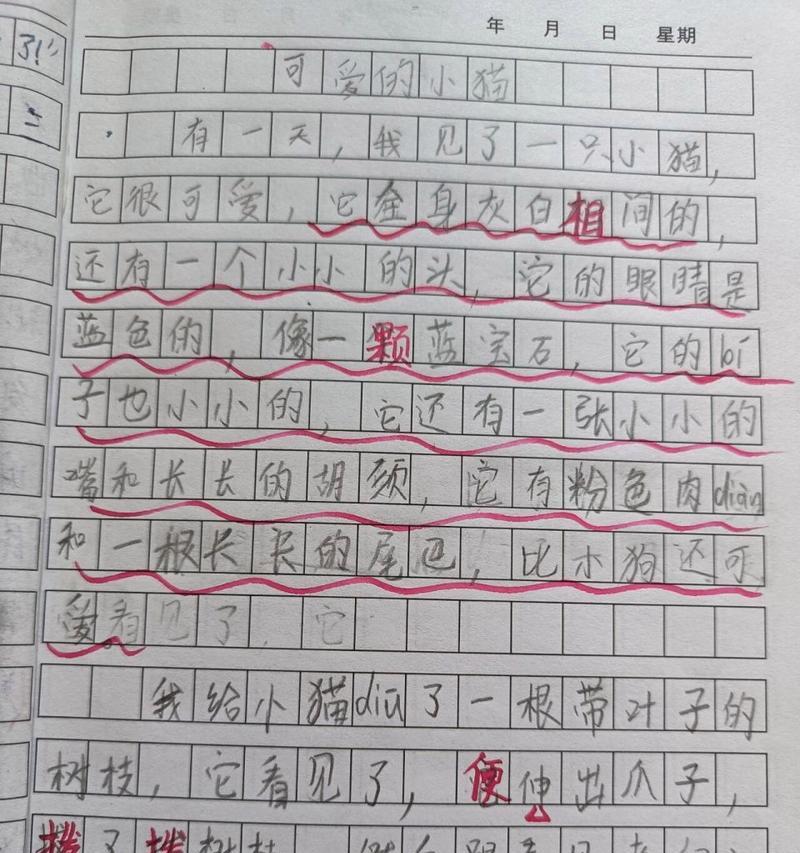 年 月 日 星期
了!"
可爱的小猫
有一天,我见了一只小猫,
它很可爱,它全身灰白相间的,
还有一个小小的头,它的眼睛是
蓝色的,像一颗蓝宝石,它的bí
子也小小的,它还有一张小小的
嘴和长长的胡须,它有粉色肉diàn
和一根长长的尾巴,比小狗还可
爱看见了.它
我给小猫diū了一根带叶子的
树枝,它看见了,便伸出爪子,
拨了拨树枝